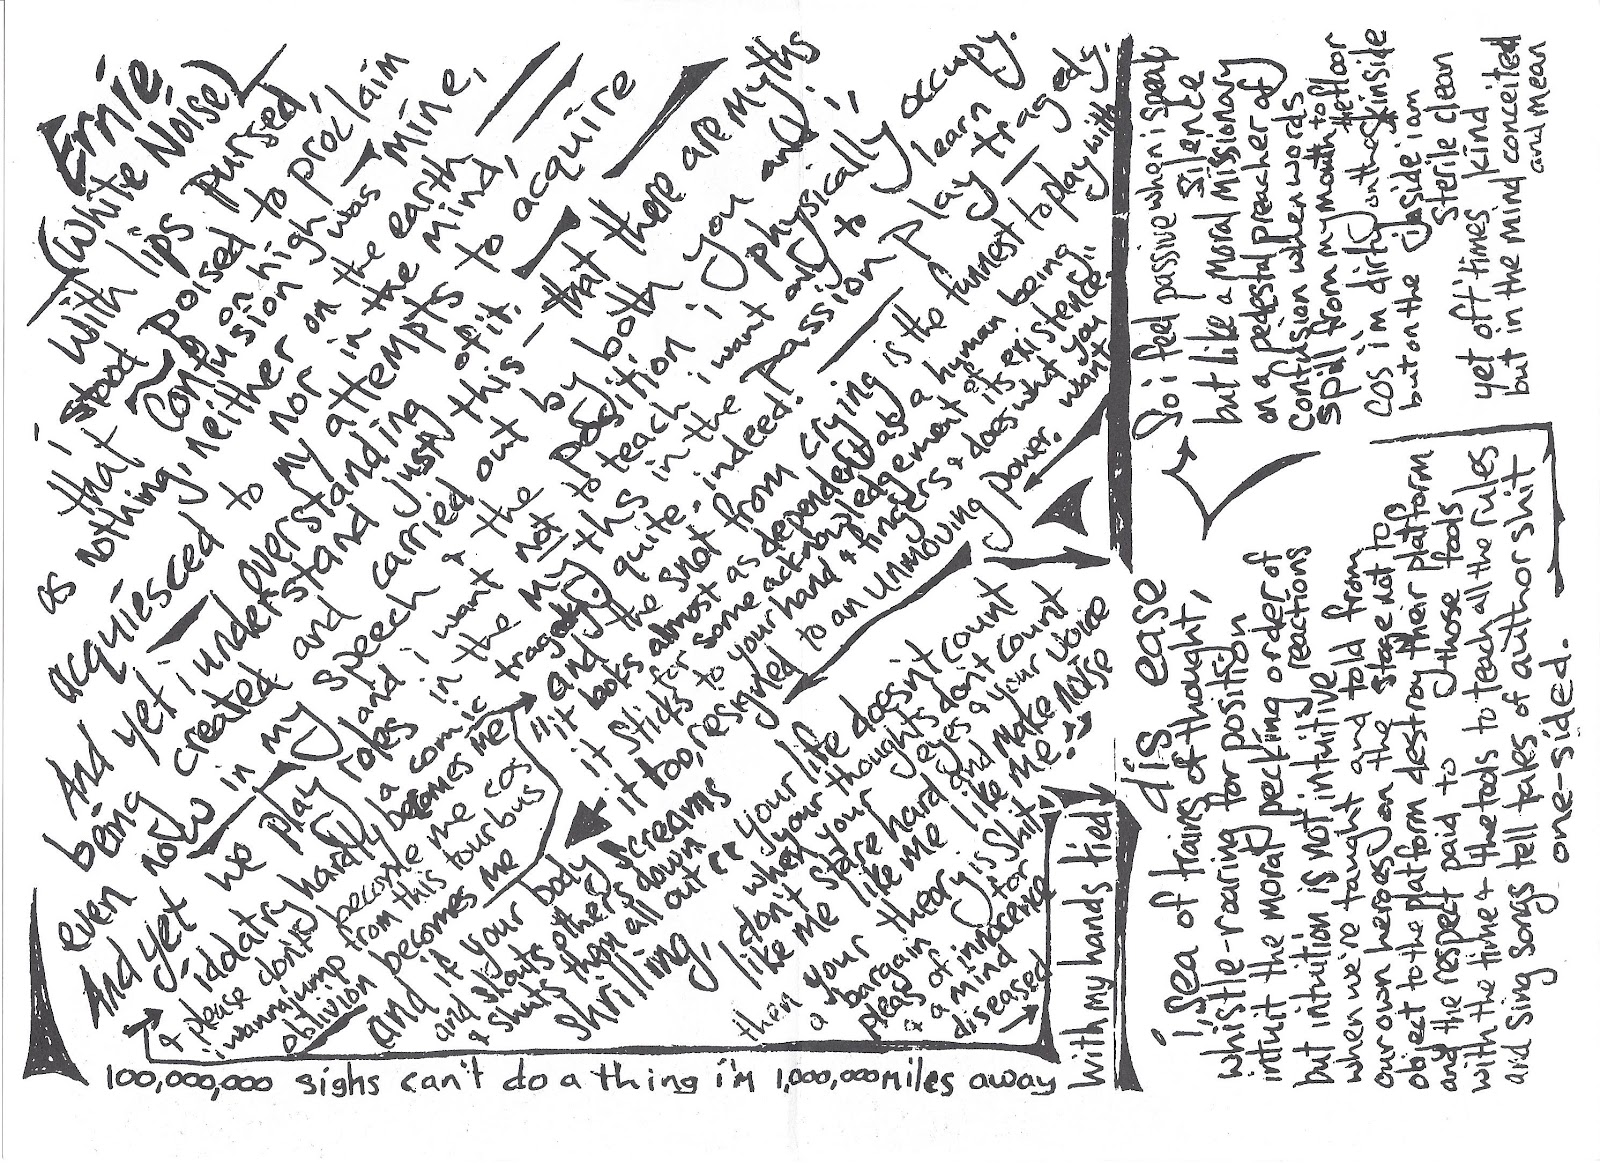 Ernie.
(White Noise)
i stood with lips pursed,
that poised to proclaim
as Confusion on high was mine,
nothing, neither on the earth
acquiesced to nor in the mind,
my attempts to acquire
And yet i understand overstanding of it.
being created just this — that there are myths
even now and carried out by both you and i
in my speech & the position i physically occupy.
And yet we play roles and i want not to teach i want only to learn
in the myths in the passion play tragedy.
a comic tragedy quite, indeed!
idolatry hardly becomes me
& please don't become me cos
i wanna jump from this tour bus
oblivion becomes me
and the snot from crying is the funnest to play with.
"it looks almost as dependent as a human being
it sticks for some acknowledgement of its existence"
it sticks to your hand & fingers & does what you want
it too, resigned to an unmoving power.
and if your body screams
and shouts others down
& shuts them all out
shrilling,
" your life doesn't count
when your thoughts don't count
i don't like your eyes & your voice
like me stare hard and make noise
like me like me like me."
then your theory is shit
a bargain for shit
pleas of innocence
& a mind
diseased
100,000,000 sighs can't do a thing i'm 1,000,000 miles away
with my hands tied
dis ease
i, sea of trains of thought,
whistle-roaring for position
intuit the moral pecking order of
but intuition is not intuitive reactions
when we're taught and told from
our own heroes, on the stage not to
object to the platform destroy their platform
and the respect paid to those fools
with the time & the tools to teach all the rules
and sing songs tell tales of author shit
one-sided.
Do i feel passive when i speak
but like a moral missionary silence
on a pedestal preacher of
confusion when words
spill from my mouth to the floor
cos i'm dirty on the skin side
but on the inside i am
sterile clean
yet oft times kind
but in the mind conceited
and mean